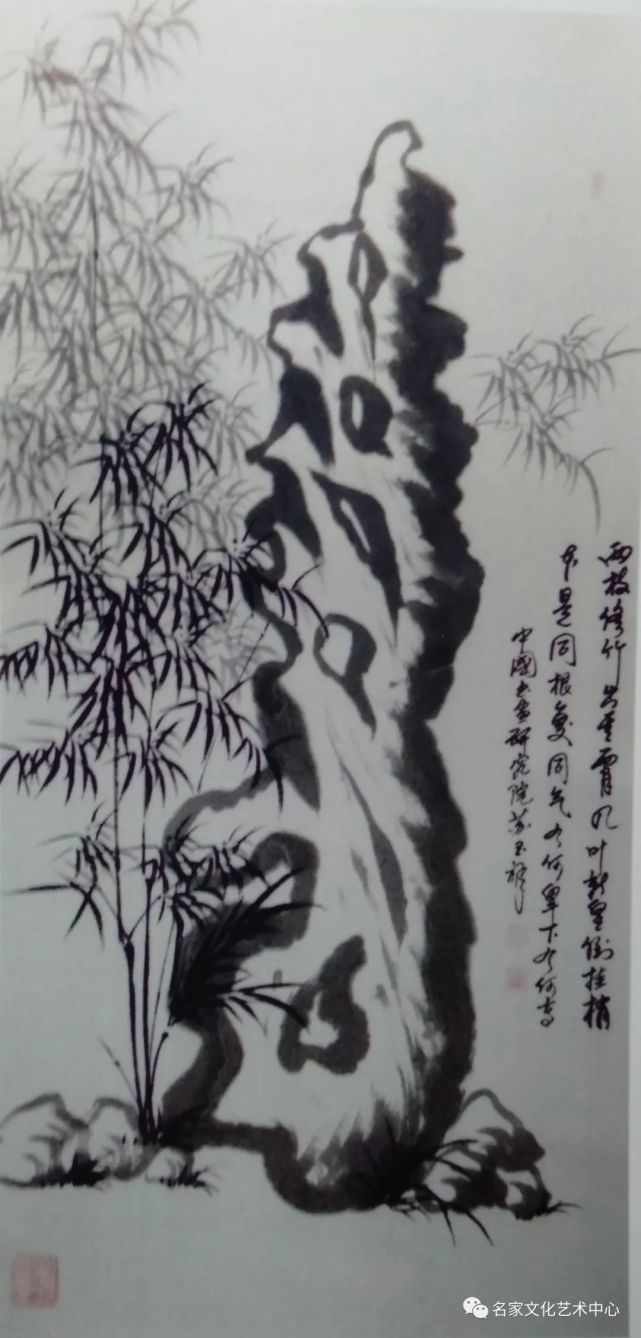 两枝修竹出重霄几叶新篁倒挂梢
本是同根复同气有何卑下有何高
中國书画研究院苏玉
名家文化艺术中心